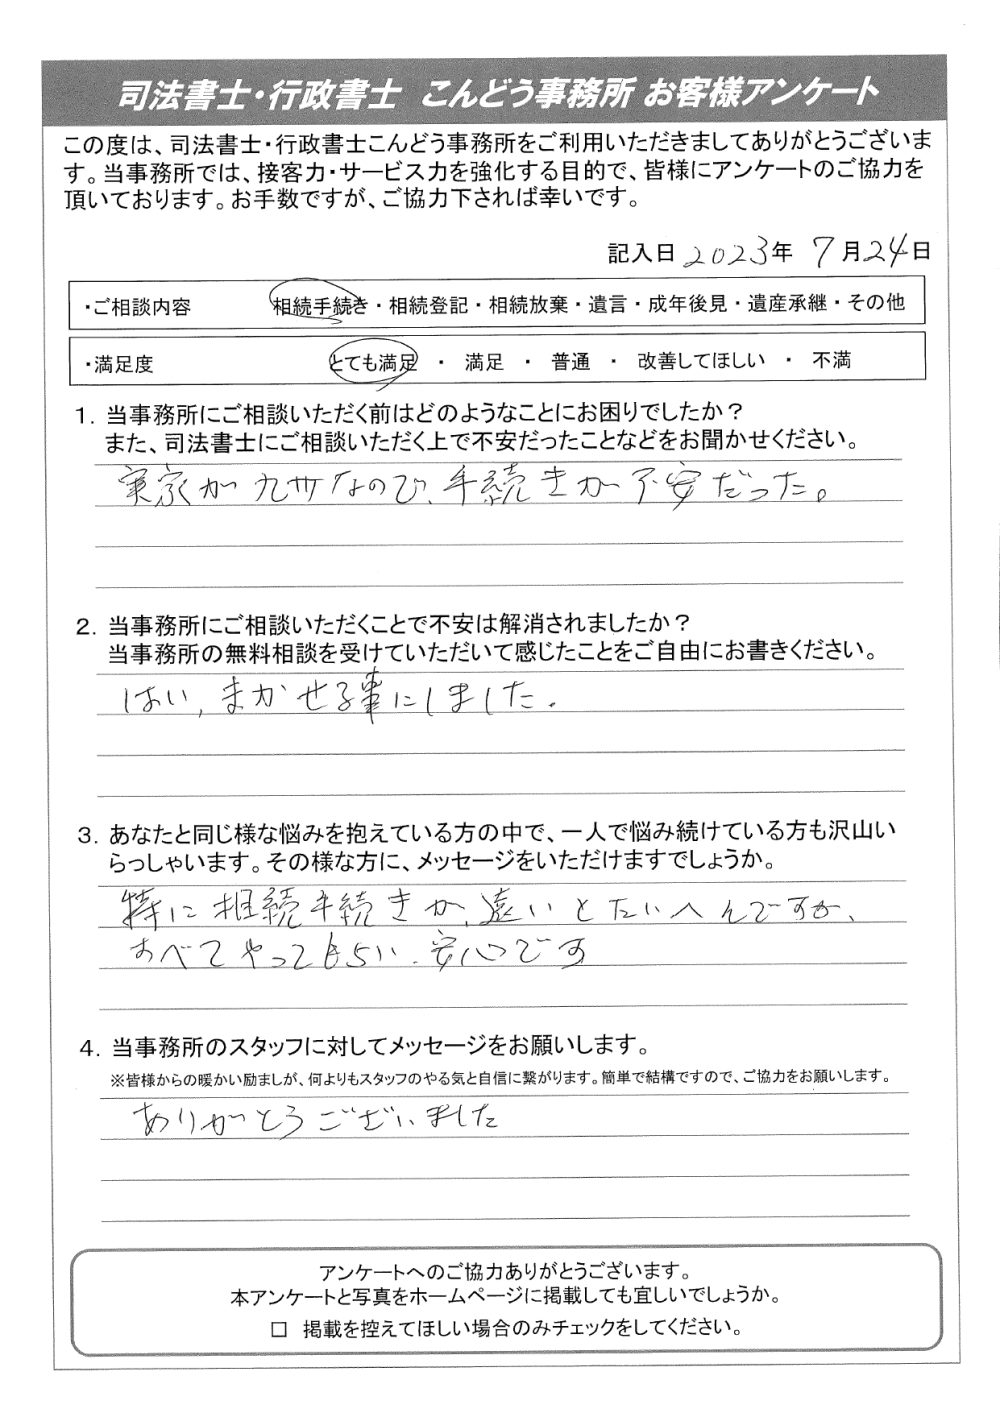 司法書士・行政書士 こんどう事務所 お客様アンケート
この度は、司法書士・行政書士こんどう事務所をご利用いただきましてありがとうございま
す。当事務所では、接客力・サービス力を強化する目的で、皆様にアンケートのご協力を
頂いております。お手数ですが、ご協力下されば幸いです。
記入日 2023年 7月24日
・ご相談内容 相続手続き・相続登記・相続放棄・遺言・成年後見・遺産承継・その他
・満足度 とても満足 ・ 満足 ・ 普通 ・ 改善してほしい ・ 不満
1. 当事務所にご相談いただく前はどのようなことにお困りでしたか？
また、司法書士にご相談いただく上で不安だったことなどをお聞かせください。
実家が九州なので、手続きが不安だった。
2. 当事務所にご相談いただくことで不安は解消されましたか？
当事務所の無料相談を受けていただいて感じたことをご自由にお書きください。
はい, まかせる事にしました.
3. あなたと同じ様な悩みを抱えている方の中で、一人で悩み続けている方も沢山い
らっしゃいます。その様な方に、メッセージをいただけますでしょうか。
特に相続手続きが、遠いとたいへんですが、
すべてやってもらい、安心です
4. 当事務所のスタッフに対してメッセージをお願いします。
※皆様からの暖かい励ましが、何よりもスタッフのやる気と自信に繋がります。簡単で結構ですので、ご協力をお願いします。
ありがとうございました
アンケートへのご協力ありがとうございます。
本アンケートと写真をホームページに掲載しても宜しいでしょうか。
□ 掲載を控えてほしい場合のみチェックをしてください。